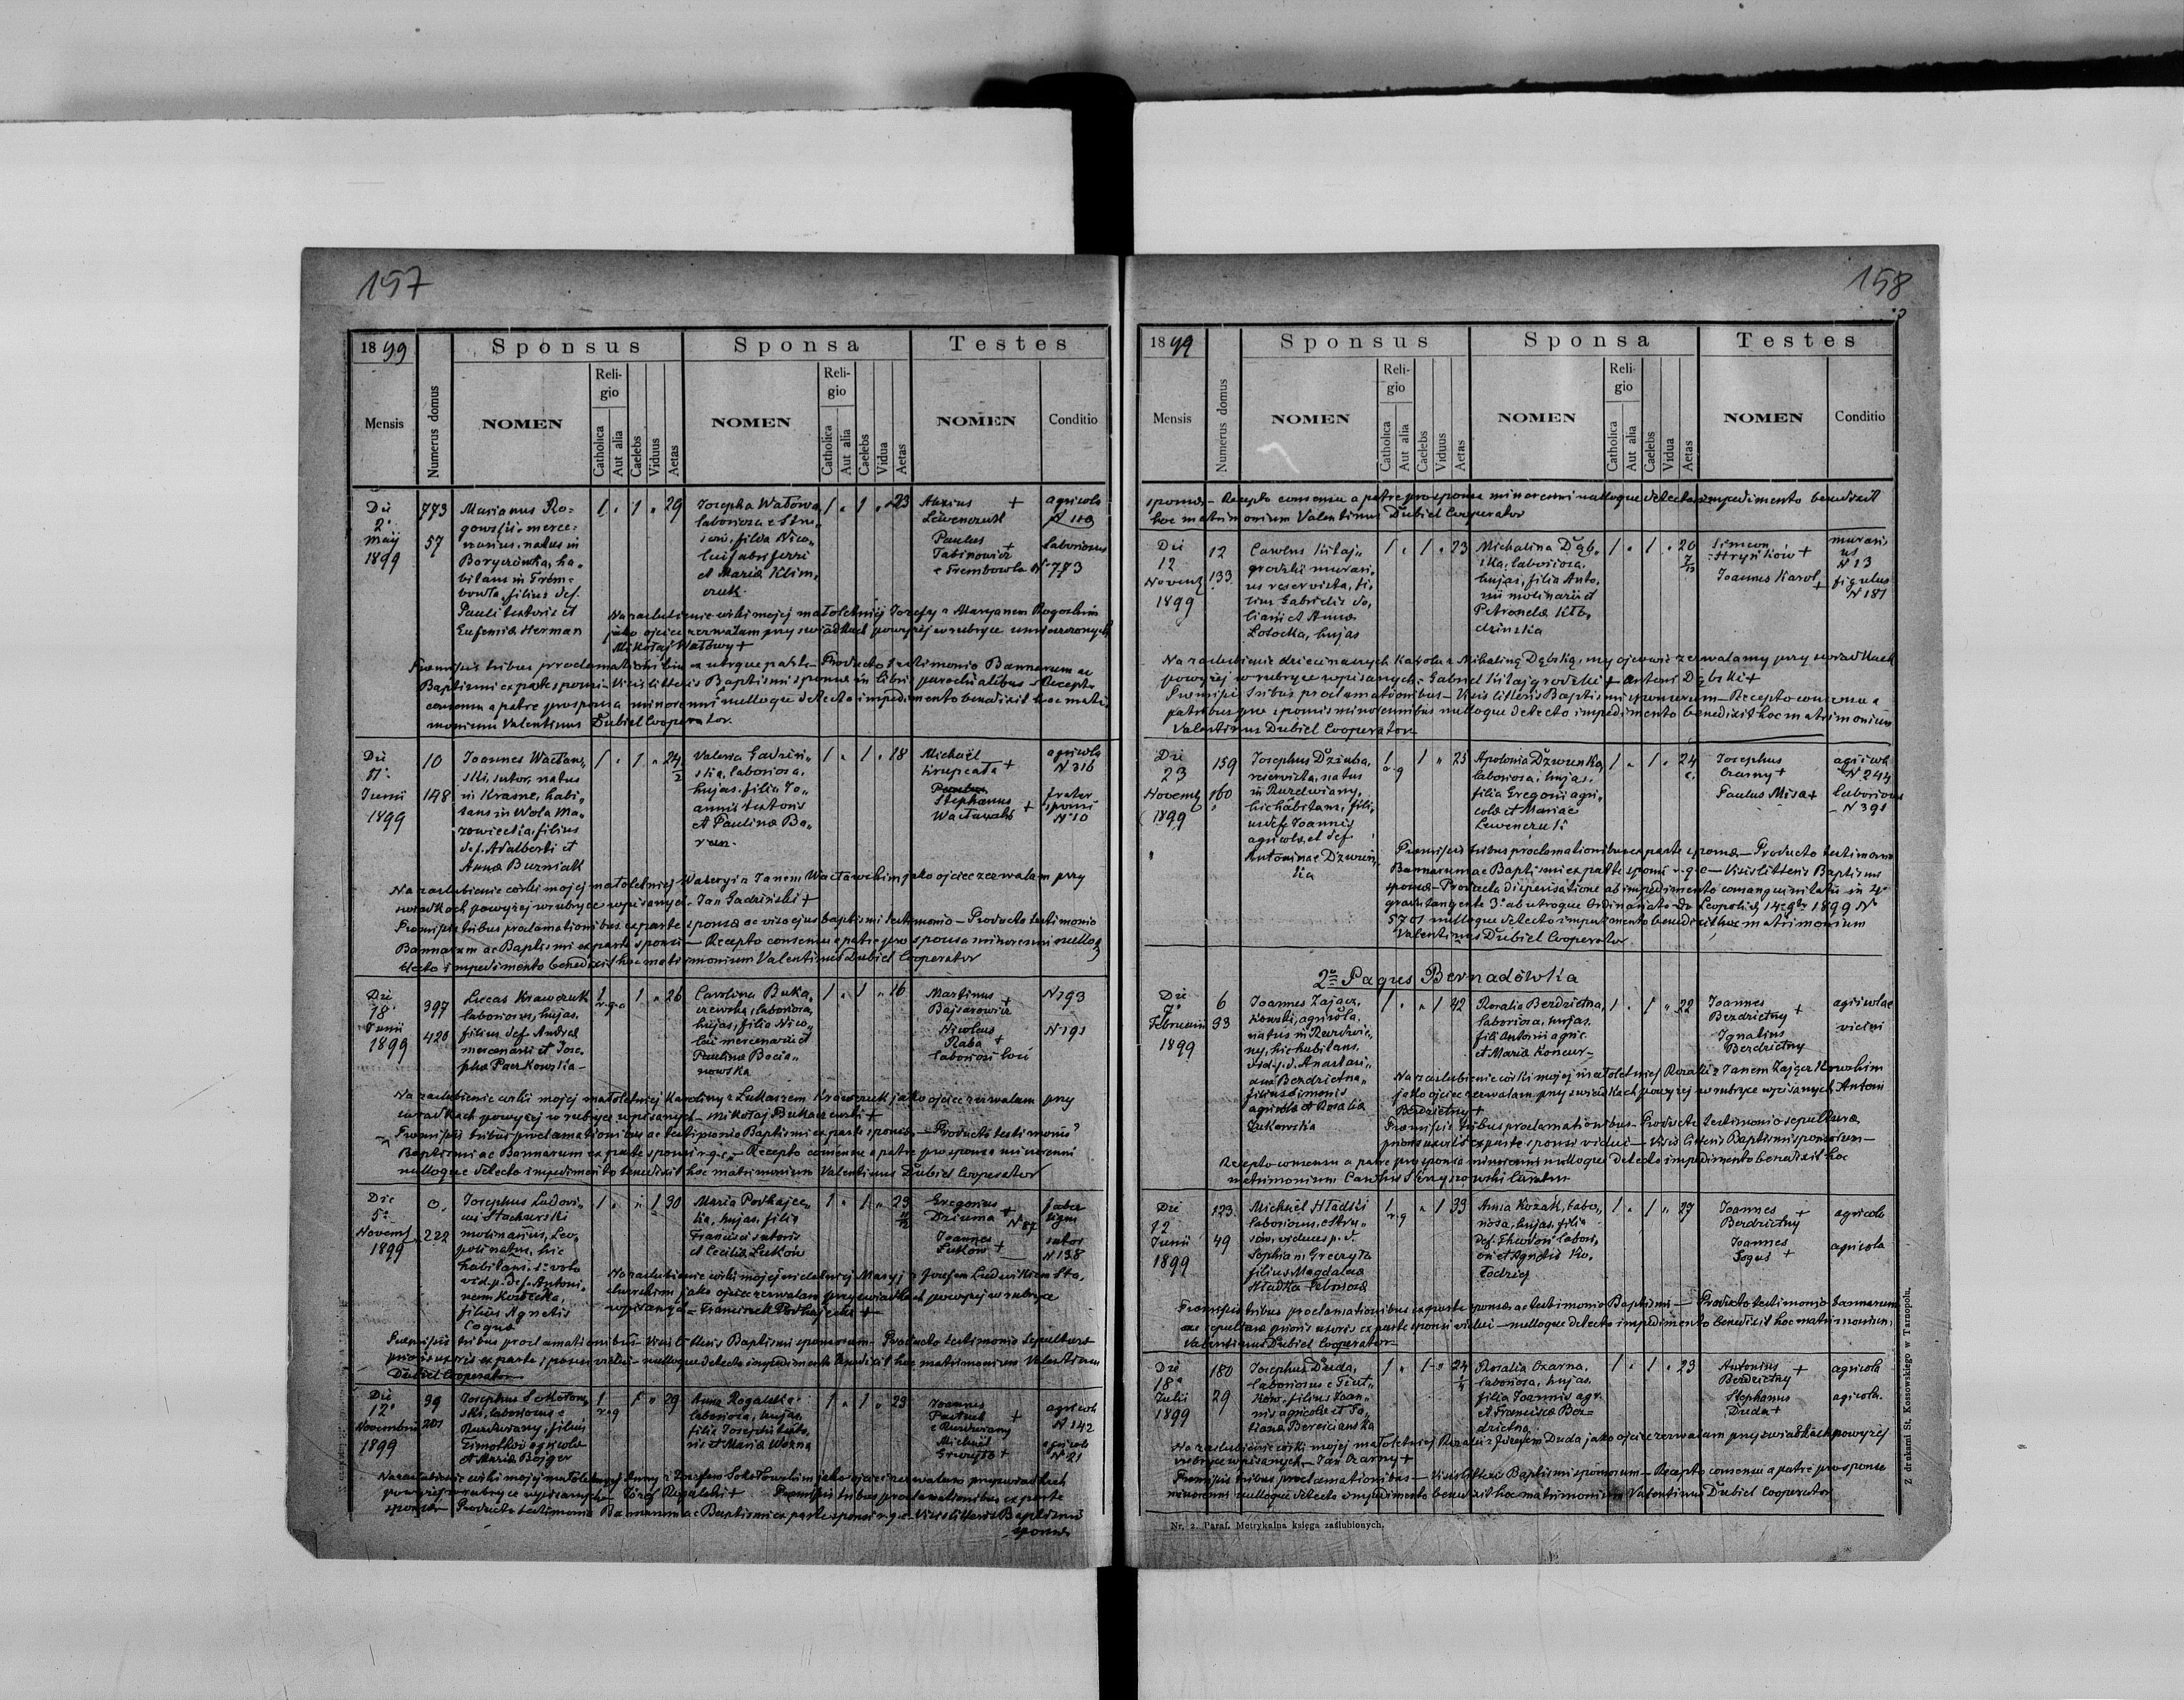 157
1899 Sponsus Sponsa Testes
Mensis Numerus domus NOMEN Religio Catholica Aut alia Caelebs Viduus Aetas NOMEN Religio Catholica Aut alia Caelebs Vidua Aetas NOMEN Conditio
Die 2a Maji 1899
773
57
Marianus Ro-
gowski merce-
narius, natus in
Borycówka, ha-
bitans in Trem-
bowla, filius def.
Pauli textoris et
Eufemiæ Herman
1 " 1 " 29
Josepha Watowa
laboriosa e Stru-
sów, filia Nico-
lai fabri ferri
et Mariæ Klim-
czuk
1 " 1 " 23
Alexius +
Lewenczuk
Paulus +
Tabinowicz
e Trembowla N 773
agricola
laboriosus
Na zaślubienie córki mojej małoletniej Jozefy z Maryanem Rogoskim
jako ojciec zezwalam przy świadkach powyżej w rubryce umieszczonych
Mikołaj Watowy +
Præmissis tribus proclamationibus ex utrque parte - Producto testimonio Bannorum ac
Baptismi ex parte sponsi - Visis litteris Baptismi sponsæ in libris parochialibus - Recepto
consensu a patre pro sponsa minorenni nulloque detecto impedimento benedixit hoc matri-
monium Valentinus Dubiel Cooperator.
Junii 1899
10
148
Joannes Wacław-
ski, sutor, natus
in Krasne, habi-
tans in Wola Ma-
zowiecka, filius
def. Adalberti et
Annæ Buzniak
1 " 1 " 24
Valeria Gadziń-
ska, laboriosa,
hujas, filia Jo-
annis textoris
et Paulinæ Ba-
ran
1 " 1 " 18
Michaël
Krupcała +
Stephanus +
Wacławski
agricola
N 316
frater
sponsi
N 10
Na zaślubienie córki mojej małoletniej Waleryi z Janem Wacławskim jako ojciec zezwalam przy
świadkach powyżej w rubryce wpisanych. Jan Gadziński +
Præmissis tribus proclamationibus ex parte sponsæ ac viso ejus baptismi testimonio - Producto testimonio
Bannorum ac Baptismi ex parte sponsi - Recepto consensu a patre pro sponsa minorenni nulloq
detecto impedimento benedixit hoc matrimonium Valentinus Dubiel Cooperator
Die 18 Junii 1899
397
420
Lucas Krawczuk
laboriosus, hujas,
filius def. Andreæ
mercenarii et Jose-
phæ Paczkowska
1 r.g.c. 1 " 26
Carolina Buka-
czewska, laboriosa,
hujas, filia Nico-
lai mercenarii et
Paulinæ Bocia-
nowska
1 " 1 " 16
Martinus +
Bajsarowicz
Nicolaus
Raba +
laboriosi loci
N 293
N 191
Na zaślubienie córki mojej małoletniej Karoliny z Łukaszem Krawczuk jako ojciec zezwalam przy
świadkach powyżej w rubryce wpisanych - Mikołaj Bukaczewski +
Præmissis tribus proclamationibus ac testimonio Baptismi ex parte sponsæ - Producto testimonio
Baptismi ac Bannorum ex parte sponsi r.g.c. - Recepto consensu a patre pro sponsa minorenni
nulloque detecto impedimento benedixit hoc matrimonium Valentinus Dubiel Cooperator
Die 5a Novemb. 1899
0.
222
Josephus Ludovi-
cus Stachurski
molinarius, Leo-
poli natus, hic
habitans,
vid. p. def. Antoni-
nam Kozdecka,
filius Agnetis
1 " " 1 30
Maria Podhajec-
ka, hujas, filia
Francisci sutoris
et Ceciliæ Luków
1 " 1 " 23
Gregorius +
Dziuma N 87
Joannes
Luków +
faber
ligni
sutor
N 138
Na zaślubienie córki mojej nieletniej Maryj z Jozefem Ludwikiem Sta-
churskim jako ojciec zezwalam przy świadkach powyżej w rubryce
wpisanych - Franciszek Podhajecki +
Præmissis tribus proclamationibus - Visis litteris Baptismi sponsorum - Producto testimonio sepulturæ
prioris uxoris ex parte sponsi vidui - nulloque detecto impedimento benedixit hoc matrimonium Valentinus
Dubiel Cooperator
Die 12a Novembris 1899
39
201
Josephus Sokołow-
ski, laboriosus e
Ruzdwiany, filius
Timothei agricolæ
et Mariæ Bojger
1 r.g 1 " 29
Anna Rogalska
laboriosa, hujas,
filia Josephi texto-
ris et Mariæ Wozna
1 " 1 " 23
Joannes
Pastuch +
e Ruzdwiany
Michael
Greczyło +
agricola
N 142
agricola
N 21
Na zaślubienie córki mojej małoletniej Anny z Jozefem Sokołowskim jako ojciec zezwalam przy świadkach
powyżej w rubryce wpisanych - Józef Rogalski + Præmissis tribus proclamationibus ex parte
sponsæ - Producto testimonio Bannorum ac Baptismi ex parte sponsi r.g.c. - Visis litteris Baptismi
sponsæ
158
1899 Sponsus Sponsa Testes
Mensis Numerus domus NOMEN Religio Catholica Aut alia Caelebs Viduus Aetas NOMEN Religio Catholica Aut alia Caelebs Vidua Aetas NOMEN Conditio
sponsæ - Recepto consensu a patre pro sponsa minorenni nulloque detecto impedimento benedixit
hoc matrimonium Valentinus Dubiel Cooperator
Die 12 Novemb 1899
12
133
Carolus Kitaj-
grodzki murari-
us reservista, fi-
lius Gabrielis
et Annæ
Łosocka, hujas
1 " 1 " 23
Michalina Dąb-
ska, laboriosa,
hujas, filia Anto-
nii molinarii et
Petronelæ Kłb-
dzinska
1 " 1 " 20
Simeon
Hrynków +
Joannes Karol +
murari-
us
N 13
figulus
N 181
Na zaślubienie dzieci naszych Karola z Mihaliną Dąbską, my ojcowie zezwalamy przy świadkach
powyżej w rubryce wpisanych - Gabriel Kitajgrodzki + Antoni Dąbski +
Præmissis tribus proclamationibus - Visis litteris Baptismi sponsorum - Recepto consensu a
patribus pro sponsis minorennibus nulloque detecto impedimento benedixit hoc matrimonium
Valentinus Dubiel Cooperator
Die 23 Novemb 1899
159
160
Josephus Dziuba,
reservista, natus
in Ruzdwiany,
hic habitans, fili-
us def. Joannis
agricolæ et def.
Antoninæ Dzwon-
ka
1 r.g 1 " 25
Apolonia Dzwonka,
laboriosa, hujas,
filia Gregorii agri-
colæ et Mariæ
Lewenczuk
1 " 1 " 24
Josephus
Czarny +
Paulus Misa +
agricola
N 244
laboriosus
N 391
Præmissis tribus proclamationibus ex parte sponsæ - Producto testimonio
Bannorum ac Baptismi ex parte sponsi r.g.c - Visis litteris Baptismi
sponsæ - Producta dispensatione ab impedimento consanguinitatis in 4o
gradu tangente 3o ab utroque Ordinariato - Leopoli 1899 No
nulloque detecto impedimento benedixit hoc matrimonium
Valentinus Dubiel Cooperator
2o Pagus Bernadówka
Die 7a Februarii 1899
6
33
Joannes Zając-
kowski, agricola,
natus in Ruzdwia-
ny, hic habitans,
vid. p. d. Anastasi-
am Bezdzietna,
filius Simonis
agricolæ et Rosaliæ
Żukowska
1 " " 1 42
Rosalia Bezdzietna,
laboriosa, hujas,
filia Antonii agric.
et Mariæ Koncur
1 " 1 " 22
Joannes
Bezdzietny +
Ignatius
Bezdzietny
agricolæ
vicini
Na zaślubienie córki mojej małoletniej Rozalii z Janem Zajączkowskim
jako ojciec zezwalam przy świadkach powyżej w rubryce wpisanych Antoni
Bezdzietny +
Præmissis tribus proclamationibus - Producto testimonio sepulturæ
prioris uxoris ex parte sponsi vidui - Visis litteris Baptismi sponsorum -
Recepto consensu a patre pro sponsa minorenni nulloque detecto impedimento benedixit hoc
matrimonium Carolus Curatus
Die 12 Junii 1899
123.
49
Michael Hładki
laboriosus, e Stru-
sów, viduus p. d.
Sophiam Greczyło
filius Magdalenæ
Hładka
1 r.g " 1 33
Anna Kozak, labo-
riosa, hujas, filia
def. Theodori labori-
osi et Agnetis Ko-
łodziej
1 " 1 " 27
Joannes +
Bezdzietny
Joannes
Gogus +
agricola
agricola
Præmissis tribus proclamationibus ex parte sponsæ ac testimonio Baptismi - Producto testimonio bannorum
ac sepulturæ prioris uxoris ex parte sponsi vidui - nulloque detecto impedimento benedixit hoc matrimonium
Valentinus Dubiel Cooperator
Die 18a Julii 1899
180
29
Josephus Duda,
laboriosus e Tiut-
ków, filius Joan-
nis agricolæ et Ta-
tianæ Berezianska
1 " 1 " 24
Rosalia Czarna,
laboriosa, hujas,
filia Joannis agr.
et Franciscæ Bez-
dzietna
1 " 1 " 23
Antonius +
Bezdzietny
Stephanus
Duda +
agricola
agricola.
Na zaślubienie córki mojej małoletniej Rozalii z Józefem Duda jako ojciec zezwalam przy świadkach powyżej
w rubryce wpisanych - Jan Czarny +
Præmissis tribus proclamationibus - Visis litteris Baptismi sponsorum - Recepto consensu a patre pro sponsa
minorenni nulloque detecto impedimento benedixit hoc matrimonium Valentinus Dubiel Cooperator
Nr. 2. Paraf. Metrykalna księga zaślubionych.
Z drukarni St. Kossowskiego w Tarnopolu.